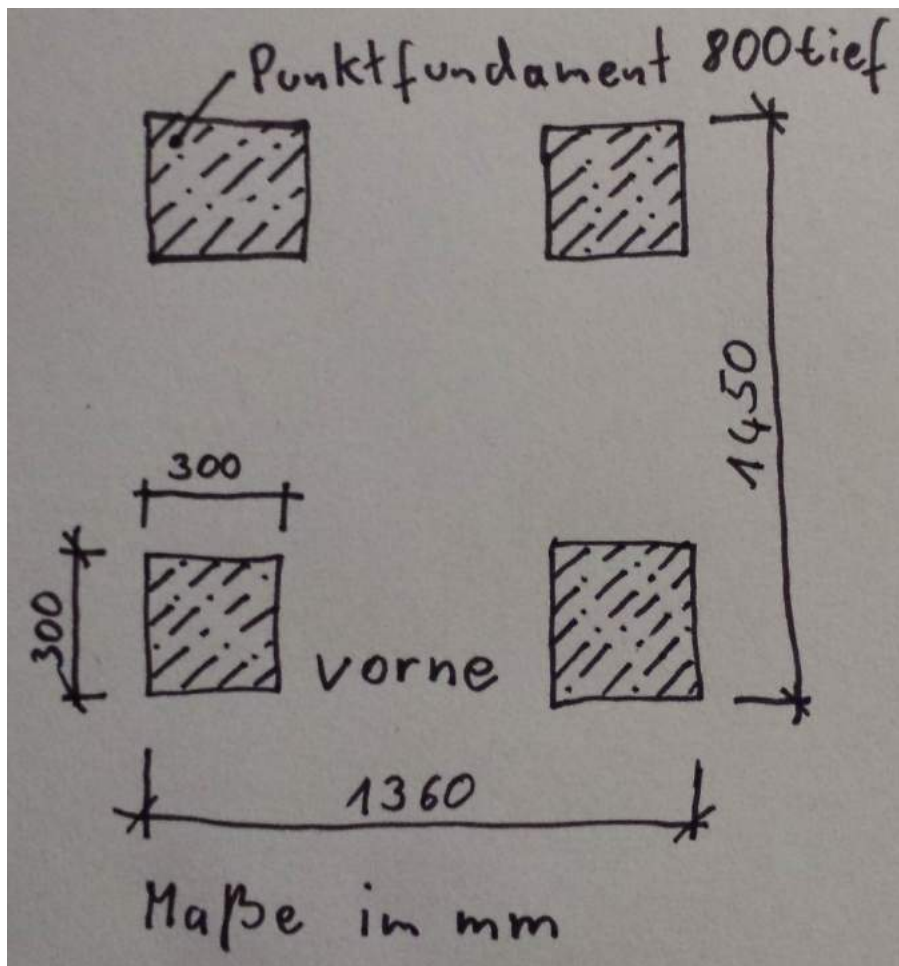 Punktfundament 800tief
1450
300
300
vorne
1360
Maße im mm